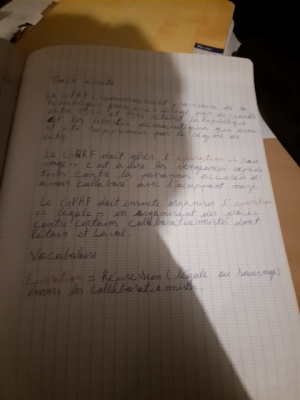 Trace écrite
Le GPRF (Gouvernement provisoire de la
République française) dirigé par de Gaulle
entre 1944 et 1946 rétablit la République
et les libertés démocratiques que avait
été supprimées par le régime de
Vichy.
Le GPRF doit gérer l'épuration « sau-
vage » c'est à dire les vengeances
contre les personnes accusées d'
avoir collaboré avec l'occupant nazi.
Le GPRF doit ensuite organiser l'épuration
« légale » en organisant des procès
contre certains collaborationnistes dont
Pétain et Laval.
Vocabulaire
Epuration = Répression (légale ou sauvage)
envers les collaborationnistes.